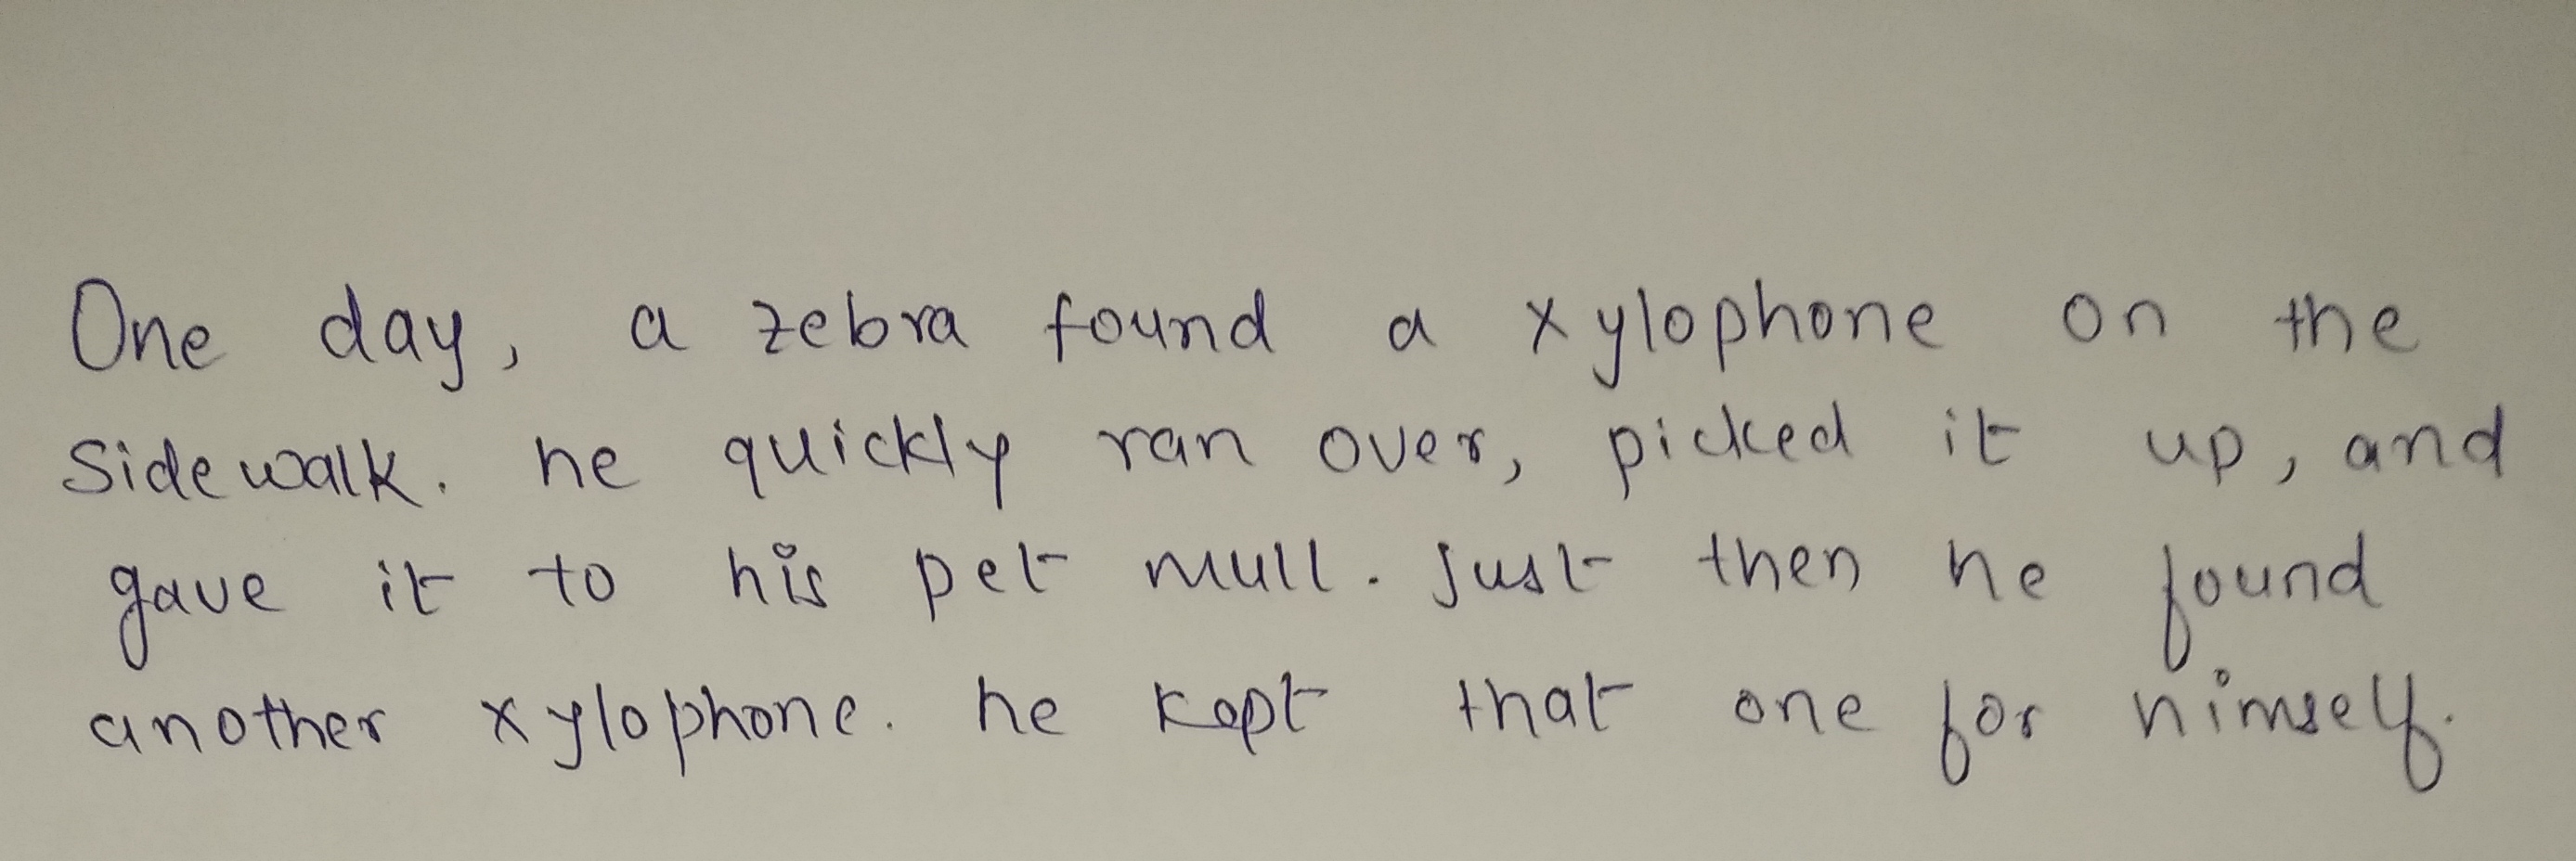 One day, a zebra found a xylophone on the
Sidewalk. he quickly ran over, picked it up, and
gave it to his pet mull. Just then he found
another xylophone. he kept that one for himself.